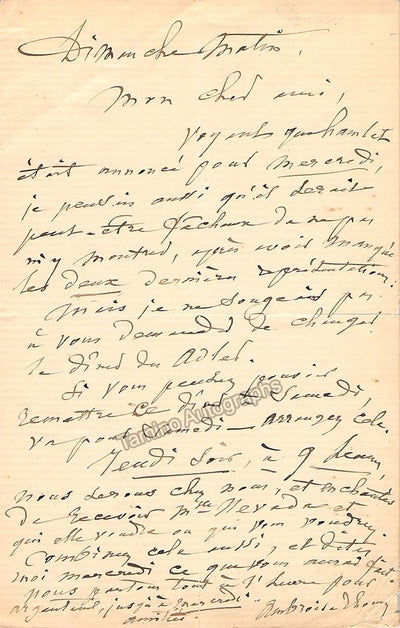 Dimanche Matin.
Mon cher ami,
Voyant qu'hamlet
était annoncé pour mercredi,
je pensais aussi qu'il serait
peut-être fâcheux de ne pas
m'y montrer, après avoir manqué
les deux dernières représentations.
Mais je ne songeais pas
à vous demander de changer
le dîner du
Si vous pensez pouvoir
remettre ce dîner à Samedi,
va pour Samedi — arrangez cela.
Jeudi soir, à 9 heures,
nous serons chez nous, et enchantés
de recevoir Mme Nevada et
qui elle voudra ou qui vous voudrez.
Combinez cela aussi, et dites
moi mercredi ce que vous aurez fait.
nous partons tout à l'heure pour
argenteuil, jusqu'à mercredi.
amitiés Ambroise Thomas
Tamino Autographs